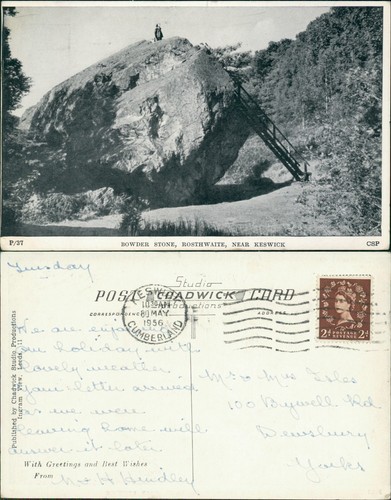 P/37 BOWDER STONE, ROSTHWAITE, NEAR KESWICK CSP
Tuesday
Studio
POST CHADWICK CARD
Productions
CORRESPONDENCE ADDRESS
KESWICK
10 AM
MAY
1956
CUMBERLAND
POSTAGE REVENUE
2d 2d
We are enjoying
our holiday with
lovely weather.
Your letter arrived
as we were
leaving home will
answer it later.
With Greetings and Best Wishes
From Mr H Hindley
Published by Chadwick Studio Productions
Ingram View, Leeds, 11
Mr & Mrs
100 Bywell Rd
Dewsbury
Yorks